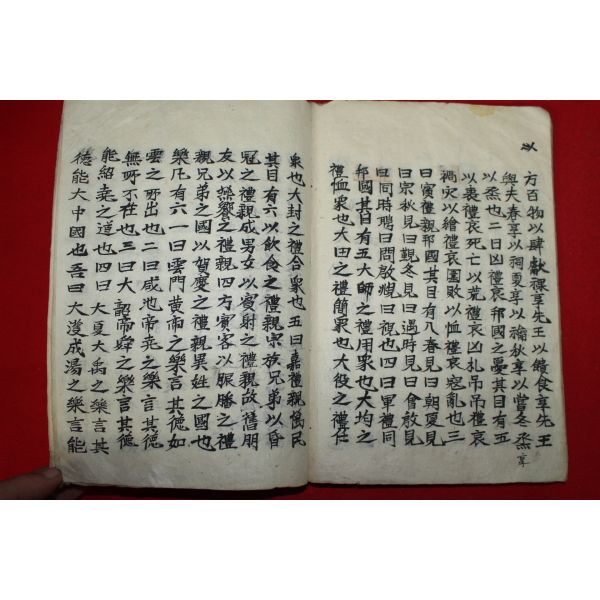 以
方百物以肆獻祼享先王以饋食享先王
與夫春享以祠夏享以禴秋享以嘗冬烝享
以烝也二曰凶禮哀邦國之憂其目有五
以喪禮哀死亡以荒禮哀凶札吊吊禮哀
禍灾以禬禮哀圍敗以恤禮哀寇亂也三
曰賓禮親邦國其目有八春見曰朝夏見
曰宗秋見曰覲冬見曰遇時見曰會殷見
曰同時聘曰問殷頫曰視也四曰軍禮同
邦國其目有五大師之禮用衆也大均之
禮恤衆也大田之禮簡衆也大役之禮任
衆也大封之禮合衆也五曰嘉禮親萬民
其目有六以飲食之禮親宗族兄弟以昏
冠之禮親成男女以賓射之禮親故舊朋
友以燕饗之禮親四方賓客以脤膰之禮
親兄弟之國以賀慶之禮親異姓之國也
樂凡有六一曰雲門黄帝之樂言其德如
雲之所出也二曰咸池帝堯之樂言其德
無所不在也三曰大韶帝舜之樂言其德
能紹堯之道也四曰大夏大禹之樂言其
德能大中國也吾曰大濩成湯之樂言能